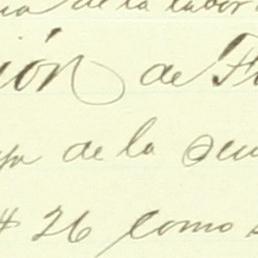 de la labor
ión de F
ya de la seu
# 26 como s